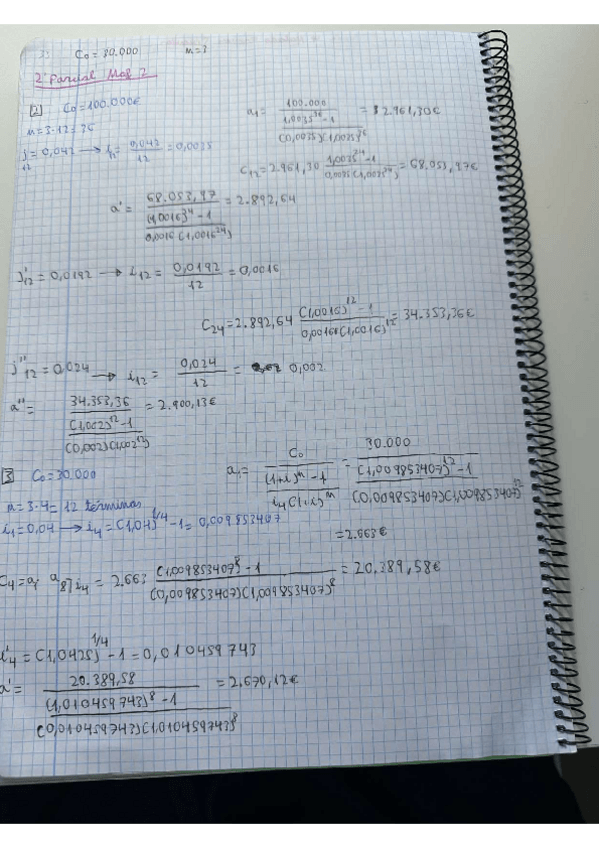 C₀ = 30.000   n = 3
2º Parcial Mof 2
2 C₀ = 100.000€
n = 3·12 = 36
j₁₂ = 0,042 → i₁₂ = 0,042/12 = 0,0035
a₁ = 100.000 / (1,0035³⁶ - 1 / (0,0035)(1,0035)³⁶) = 2.961,30€
C₁₂ = 2.961,30 · 1,0035²⁴ - 1 / 0,0035(1,0035²⁴) = 68.053,97€
a' = 68.053,97 / ((1,0016)²⁴ - 1 / 0,0016(1,0016²⁴)) = 2.892,64
j'₁₂ = 0,0192 → i₁₂ = 0,0192/12 = 0,0016
C₂₄ = 2.892,64 (1,0016)¹² - 1 / 0,0016(1,0016)¹² = 34.353,36€
j''₁₂ = 0,024 → i₁₂ = 0,024/12 = 0,002
a'' = 34.353,36 / ((1,002)¹² - 1 / (0,002)(1,002¹²)) = 2.900,13€
3 C₀ = 30.000
a₁ = C₀ / ((1+i)ⁿ - 1 / i₄(1+i)ⁿ) = 30.000 / ((1,009853407)¹² - 1 / (0,009853407)(1,009853407)¹²)
n = 3·4 = 12 términos
i₁ = 0,04 → i₄ = (1,04)^1/4 - 1 = 0,009853407
= 2.663€
C₄ = a₁ · a₈⌉i₄ = 2.663 (1,009853407)⁸ - 1 / (0,009853407)(1,009853407)⁸ = 20.389,58€
i'₄ = (1,0425)^1/4 - 1 = 0,010459743
a' = 20.389,58 / ((1,010459743)⁸ - 1 / (0,010459743)(1,010459743)⁸) = 2.670,12€